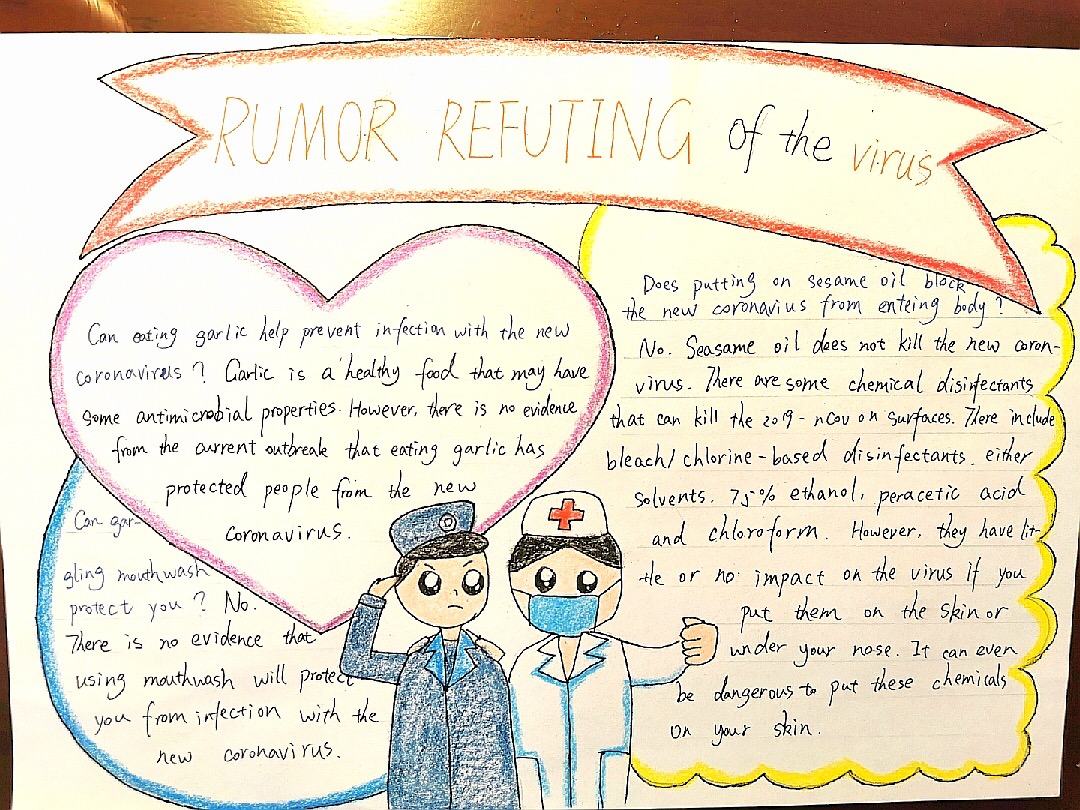 RUMOR REFUTING of the virus
Can eating garlic help prevent infection with the new
coronavirus? Garlic is a healthy food that may have
some antimicrobial properties. However, there is no evidence
from the current outbreak that eating garlic has
protected people from the new
coronavirus.
Can gar-
gling mouthwash
protect you? No.
There is no evidence that
using mouthwash will protect
you from infection with the
new coronavirus.
Does putting on sesame oil block
the new coronavius from enteing body?
No. Seasame oil does not kill the new coron-
virus. There are some chemical disinfectants
that can kill the 2019-nCov on surfaces. There include
bleach/chlorine-based disinfectants. either
solvents. 75% ethanol, peracetic acid
and chloroform. However, they have lit-
tle or no impact on the virus if you
put them on the skin or
under your nose. It can even
be dangerous to put these chemicals
on your skin.